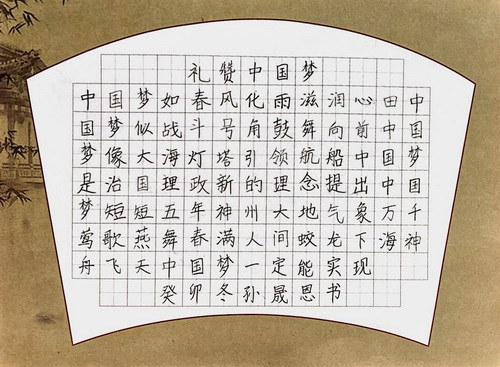 礼赞中国梦
中国梦如春风化雨滋润心田中
国梦似战斗号角鼓舞向前中国
梦像大海灯塔引领航船中国梦
是治国理政新的理念提出中国
梦短短五年神州大地气象万千
莺歌燕舞春满人间蛟龙下海神
舟飞天中国梦一定能实现
癸卯冬孙晟恩书